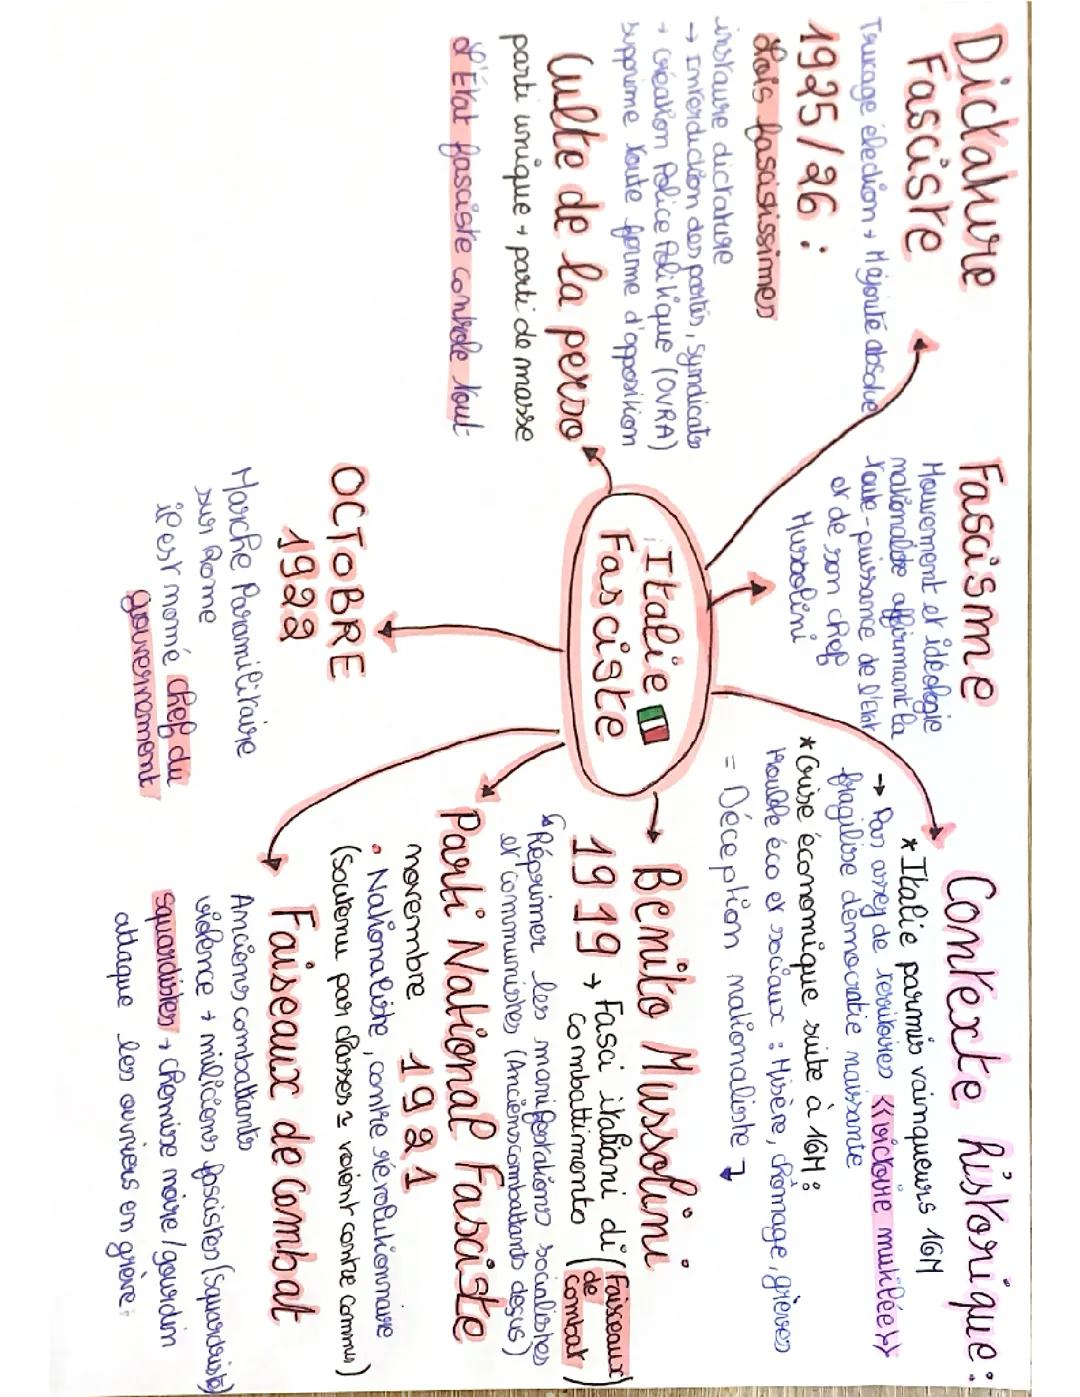 Dictature
Fasciste
Trucage élection → Majorité absolue
1925/26 :
Lois fascisissimes
instaure dictature
→ Interdiction des partis, syndicats
→ Création Police Politique (OVRA)
supprime toute forme d'opposition
Culte de la perso
parti unique → parti de masse
L'État fasciste controle tout
Fascisme
Mouvement et idéologie
nationaliste affirmant la
toute-puissance de l'Etat
et de son chef
Mussolini
Italie
Fasciste
OCTOBRE
1922
Marche Paramilitaire
sur Rome
il est nommé chef du
gouvernement
Contexte historique :
* Italie parmis vainqueurs 1GM
→ Pas assez de territoires «victoire mutilée»
fragilise démocratie naissante
* Crise économique suite à 1GM :
trouble éco et sociaux : Misère, chômage, grèves
= Déception nationaliste
Benito Mussolini
1919 → Fasci italiani di
combattimento
(Faisceaux
de
combat)
Réprimer les manifestations socialistes
et communistes (Anciens combattants déçus)
Parti National Fasciste
novembre 1921
• Nationaliste, contre révolutionnaire
(Soutenu par classes = voient contre commu)
Faiseaux de Combat
Anciens combattants
violence + miliciens fascistes (squadristes)
squardistes → chemise noire/gourdin
attaque les ouvriers en grève.